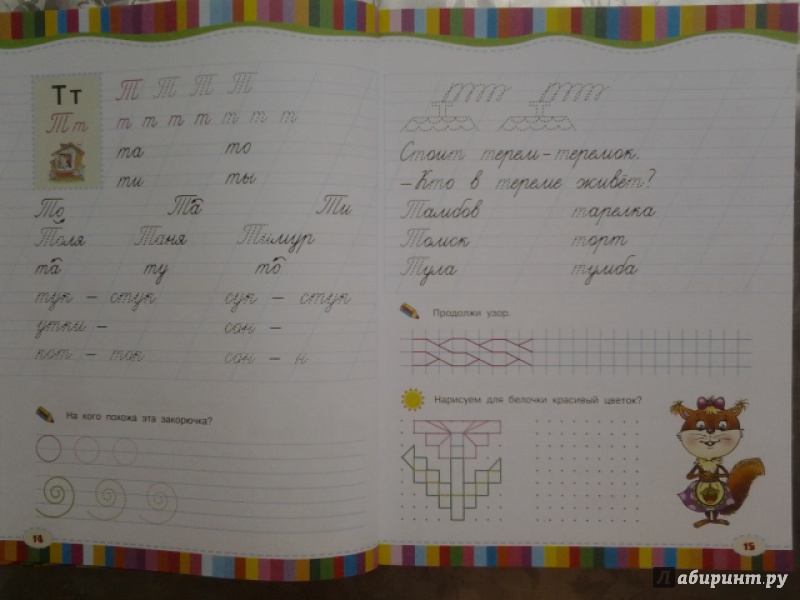 Тт
Т Т Т Т
Тт
т т т т т т т
та то
ти ты
То Та Ти
Толя Таня Тимур
та ту то
тук – стук сук – стук
утки – сон –
кот – ток сон – н
На кого похожа эта закорючка?
14
Стоит терем-теремок.
– Кто в тереме живёт?
Тамбов тарелка
Томск торт
Тула тумба
Продолжи узор.
Нарисуем для белочки красивый цветок?
15
Лабиринт.ру